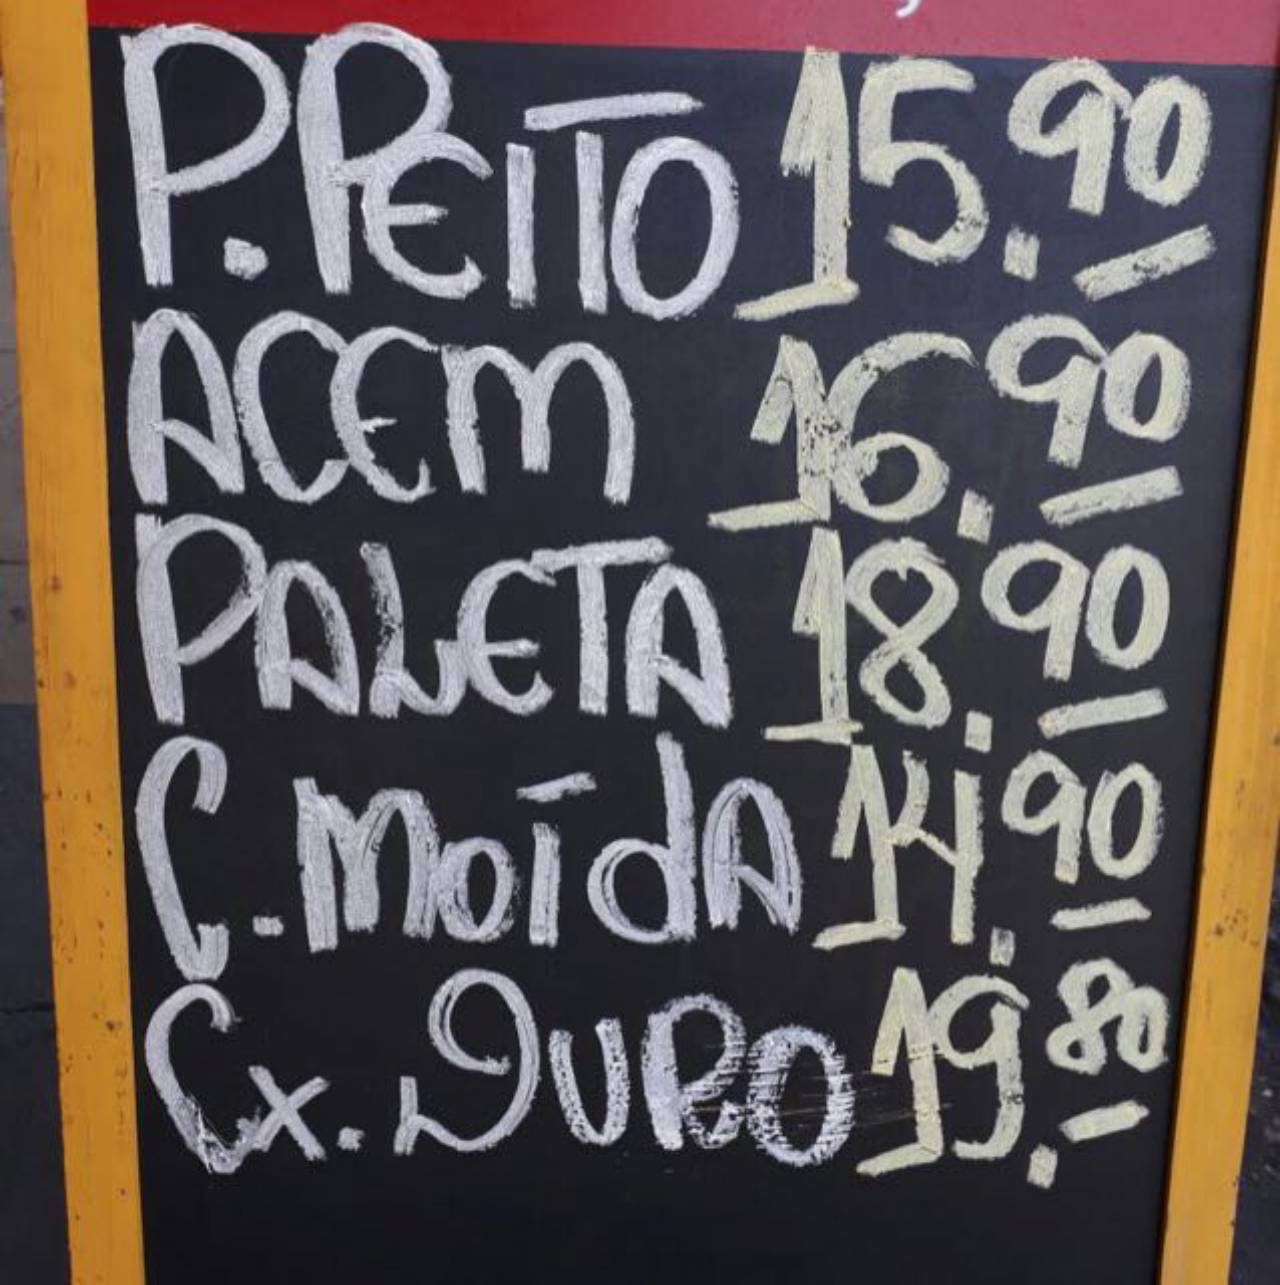 P. PEITO 15.90
ACEM 16.90
PALETA 18.90
C. MOÍDA 14.90
Cx. DURO 19.80